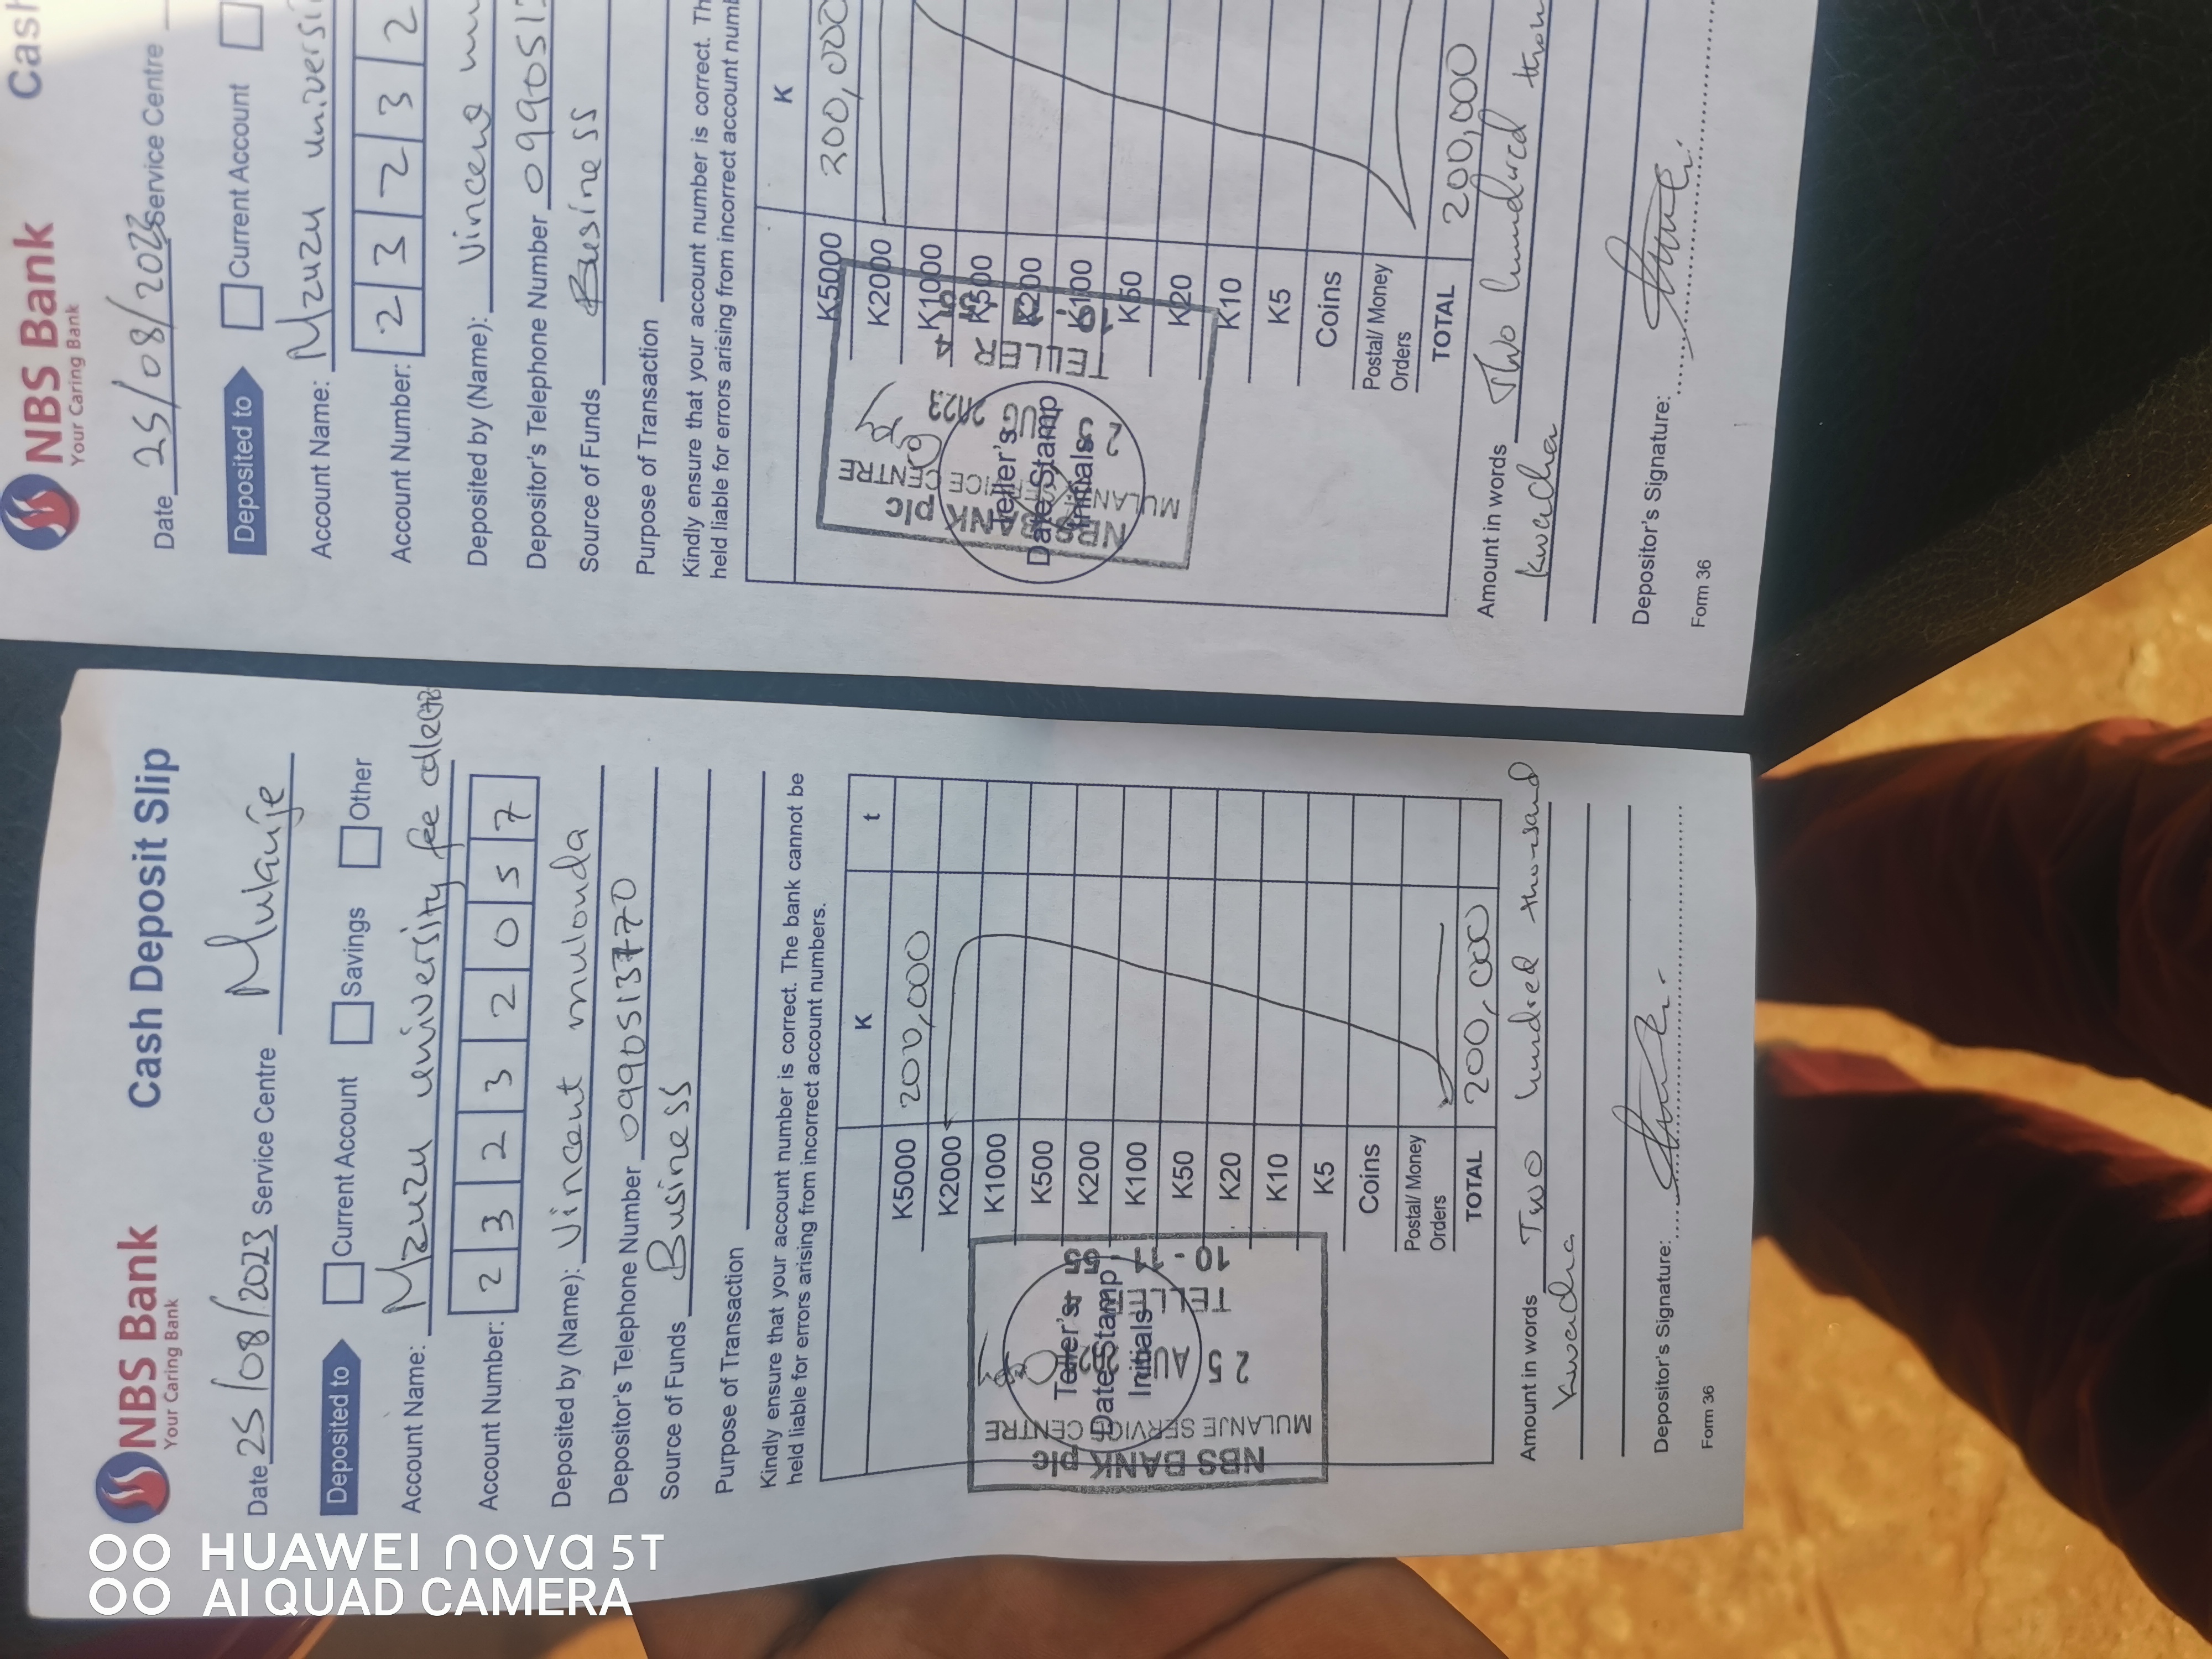 NBS Bank
Your Caring Bank
Cash Deposit Slip
Date 25/08/2023 Service Centre Mulanje
Deposited to
Current Account Savings Other
Account Name: Mzuzu university fee
Account Number: 2 3 2 3 2 0 5 7
Deposited by (Name): Vincent mulonda
Depositor's Telephone Number 0990513770
Source of Funds Business
Purpose of Transaction
Kindly ensure that your account number is correct. The bank cannot be
held liable for errors arising from incorrect account numbers.
K t
K5000 200,000
K2000
K1000
K500
K200
K100
K50
K20
K10
K5
Coins
Postal/ Money
Orders
TOTAL 200,000
Teller's
Date Stamp
Initials
NBS BANK plc
MULANJE SERVICE CENTRE
25 AUG
TELLER
Amount in words Two hundred thousand
kwacha
Depositor's Signature:
Form 36
NBS Bank
Your Caring Bank
Cash
Date 25/08/2023 Service Centre
Deposited to
Current Account
Account Name: Mzuzu universi
Account Number: 2 3 2 3 2
Deposited by (Name): Vincent mu
Depositor's Telephone Number 0990513
Source of Funds Business
Purpose of Transaction
Kindly ensure that your account number is correct. Th
held liable for errors arising from incorrect account numb
K
K5000 200,000
K2000
K1000
K500
K200
K100
K50
K20
K10
K5
Coins
Postal/ Money
Orders
TOTAL 200,000
Teller's
Date Stamp
Initials
NBS BANK plc
SERVICE CENTRE
2023
TELLER 4
Amount in words Two hundred thou
kwacha
Depositor's Signature:
Form 36
HUAWEI nova 5T
AI QUAD CAMERA